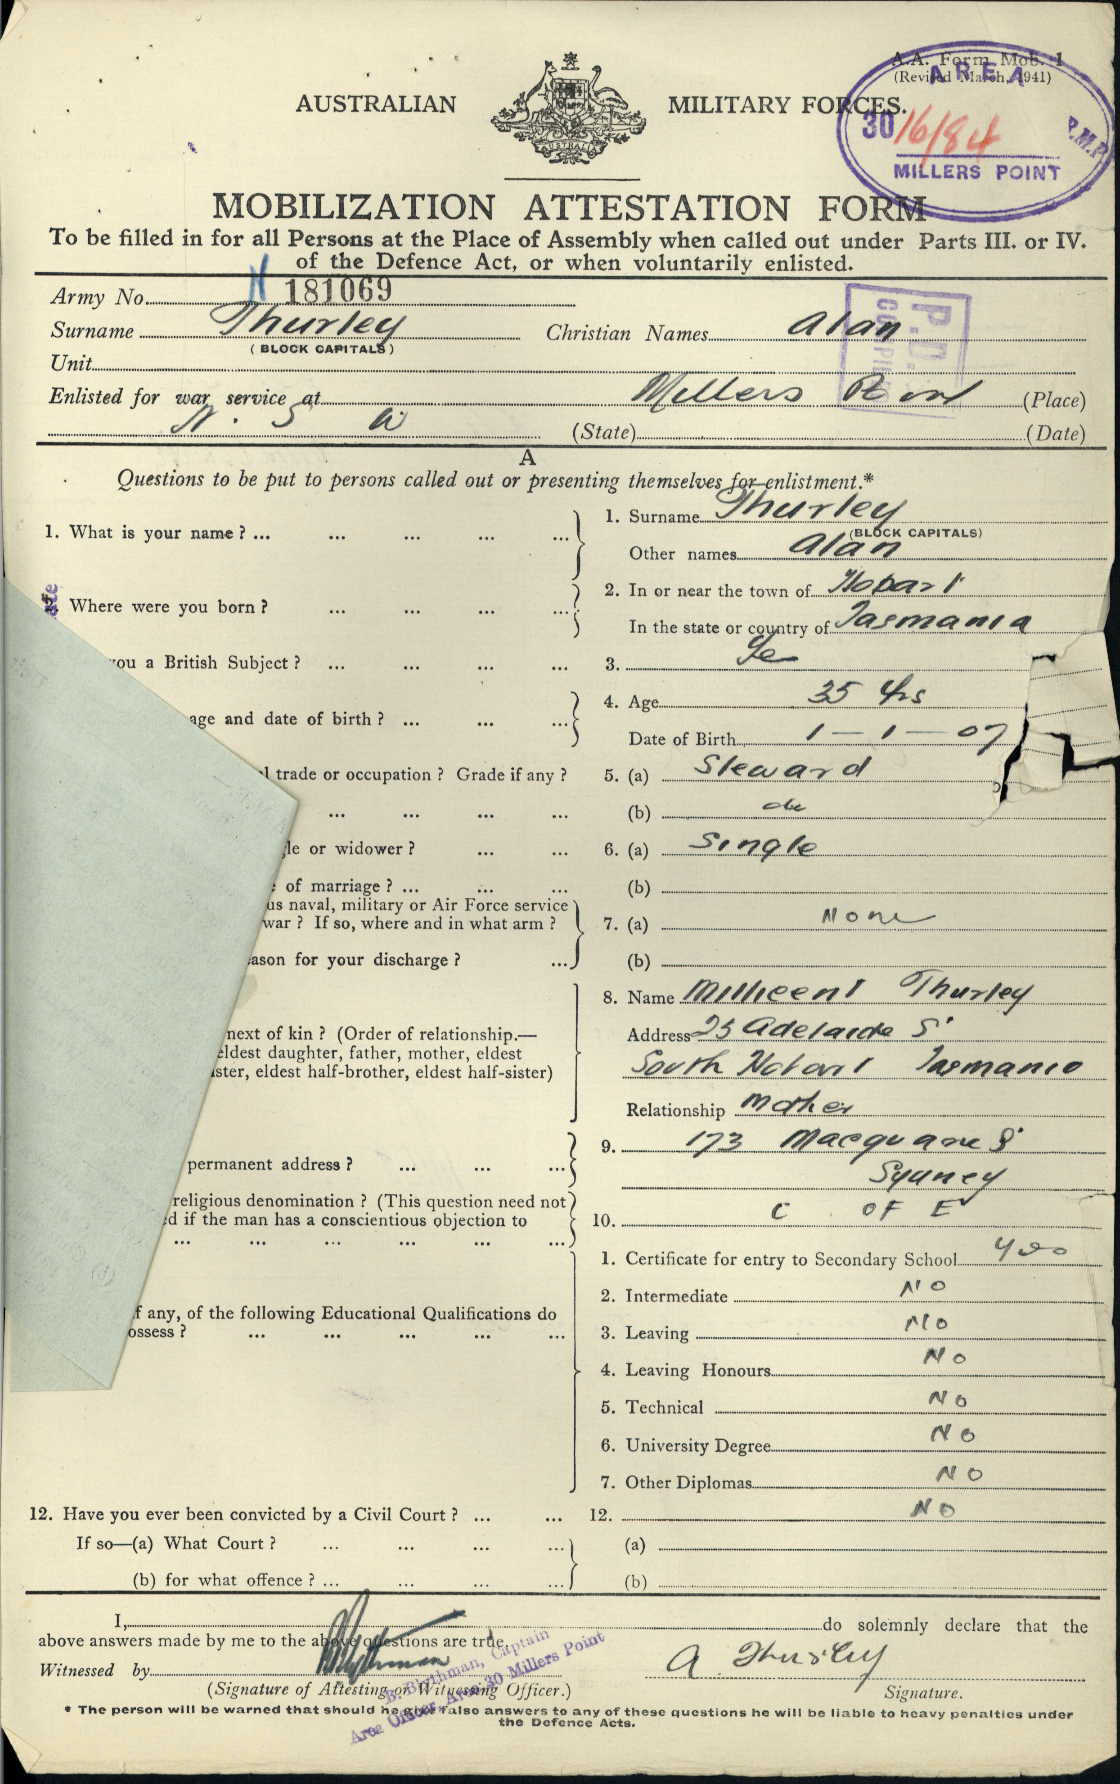 A.A. Form Mob. 1
(Revised March, 1941)
AUSTRALIAN MILITARY FORCES.
AUSTRALIA
AREA
30/6/84 R.M.P.
MILLERS POINT
MOBILIZATION ATTESTATION FORM
To be filled in for all Persons at the Place of Assembly when called out under Parts III. or IV.
of the Defence Act, or when voluntarily enlisted.
Army No. N 181069
Surname Thurley Christian Names Alan
(BLOCK CAPITALS)
P.D.
Unit
Enlisted for war service at Millers Point (Place)
N. S W (State) (Date)
A
Questions to be put to persons called out or presenting themselves for enlistment.*
1. What is your name? ... ... ... ... ... 1. Surname Thurley
(BLOCK CAPITALS)
Other names Alan
Where were you born? ... ... ... ... 2. In or near the town of Hobart
In the state or country of Tasmania
you a British Subject? ... ... ... ... 3. Ye
age and date of birth? ... ... ... 4. Age 35 yrs
Date of Birth 1 — 1 — 07
l trade or occupation? Grade if any? 5. (a) Steward
... ... ... ... (b) do
gle or widower? ... ... 6. (a) Single
of marriage? ... ... ... (b)
us naval, military or Air Force service
war? If so, where and in what arm? 7. (a) None
ason for your discharge? ... (b)
8. Name Millicent Thurley
next of kin? (Order of relationship.— Address 25 Adelaide St
eldest daughter, father, mother, eldest
ster, eldest half-brother, eldest half-sister) South Hobart Tasmania
Relationship Mother
9. 173 Macquarie St
permanent address? ... ... ... Sydney
religious denomination? (This question need not
d if the man has a conscientious objection to 10. C OF E
... ... ... ... ... ...
1. Certificate for entry to Secondary School Yes
2. Intermediate NO
f any, of the following Educational Qualifications do
ossess? ... ... ... ... ... 3. Leaving NO
4. Leaving Honours NO
5. Technical NO
6. University Degree NO
7. Other Diplomas NO
12. Have you ever been convicted by a Civil Court? ... ... 12. NO
If so—(a) What Court? ... ... ... ... (a)
(b) for what offence? ... ... ... ... (b)
I, do solemnly declare that the
above answers made by me to the above questions are true.
Witnessed by A Thurley
B. Blythman, Captain
Area Officer, Area 30 Millers Point
(Signature of Attesting or Witnessing Officer.) Signature.
* The person will be warned that should he give false answers to any of these questions he will be liable to heavy penalties under
the Defence Acts.